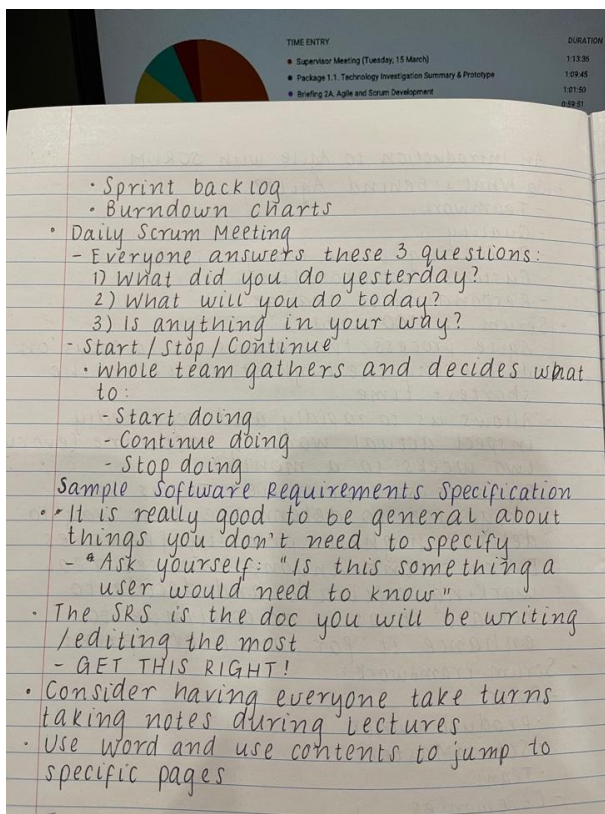 TIME ENTRY DURATION
• Supervisor Meeting (Tuesday, 15 March) 1:13:35
• Package 1.1. Technology Investigation Summary & Prototype 1:09:45
• Briefing 2A. Agile and Scrum Development 1:01:50
0:59:51
• Sprint backlog
• Burndown charts
• Daily Scrum Meeting
- Everyone answers these 3 questions:
1) What did you do yesterday?
2) What will you do today?
3) Is anything in your way?
- Start / Stop / Continue
• Whole team gathers and decides what
to:
- Start doing
- Continue doing
- Stop doing
Sample Software Requirements Specification
• It is really good to be general about
things you don't need to specify
- Ask yourself: "Is this something a
user would need to know"
• The SRS is the doc you will be writing
/editing the most
- GET THIS RIGHT!
• Consider having everyone take turns
taking notes during lectures
• Use word and use contents to jump to
specific pages